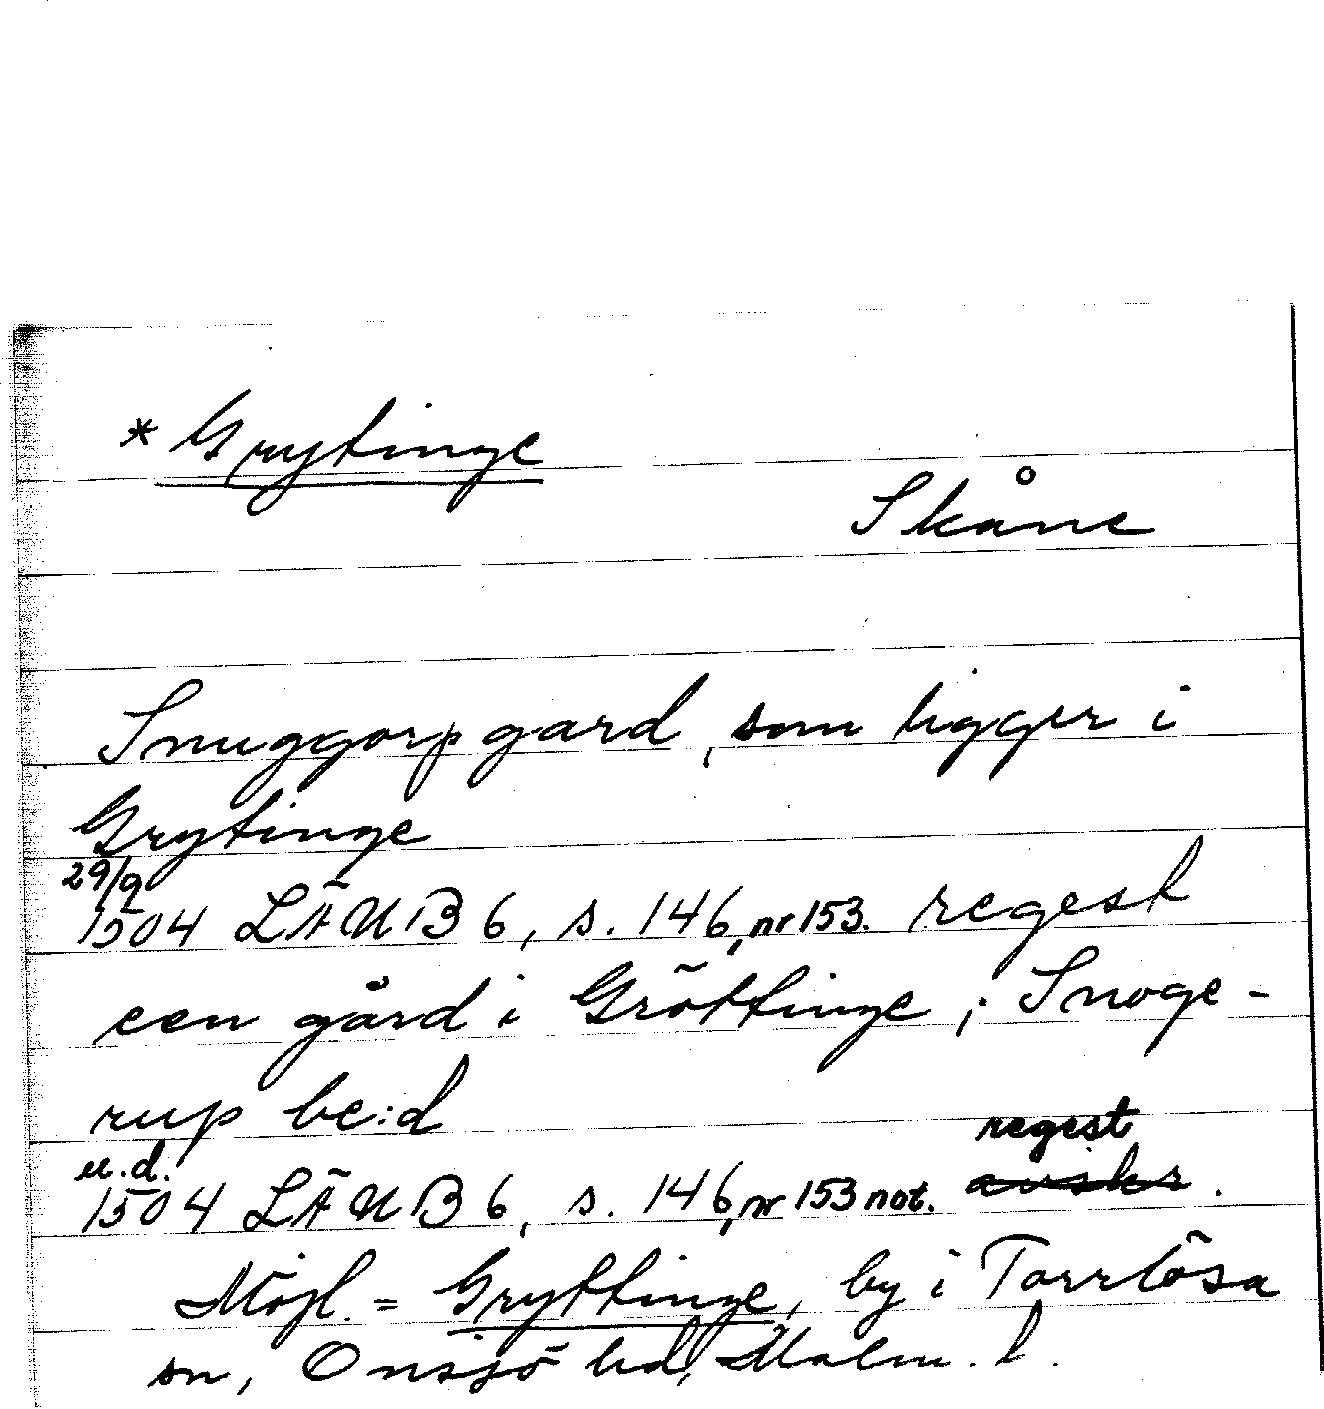 * Grytinge
Skåne
Snuggorp gard, som ligger i
Grytinge
29/9
1504 LÄUB 6, s. 146, nr 153. regest
een gård i Gröttinge ; Snoge-
rup be:d
u.d. regest
1504 LÄUB 6, s. 146, nr 153 not. avskr.
Möjl. = Gryttinge, by i Torrlösa
sn, Onsjö hd, Malm. l.